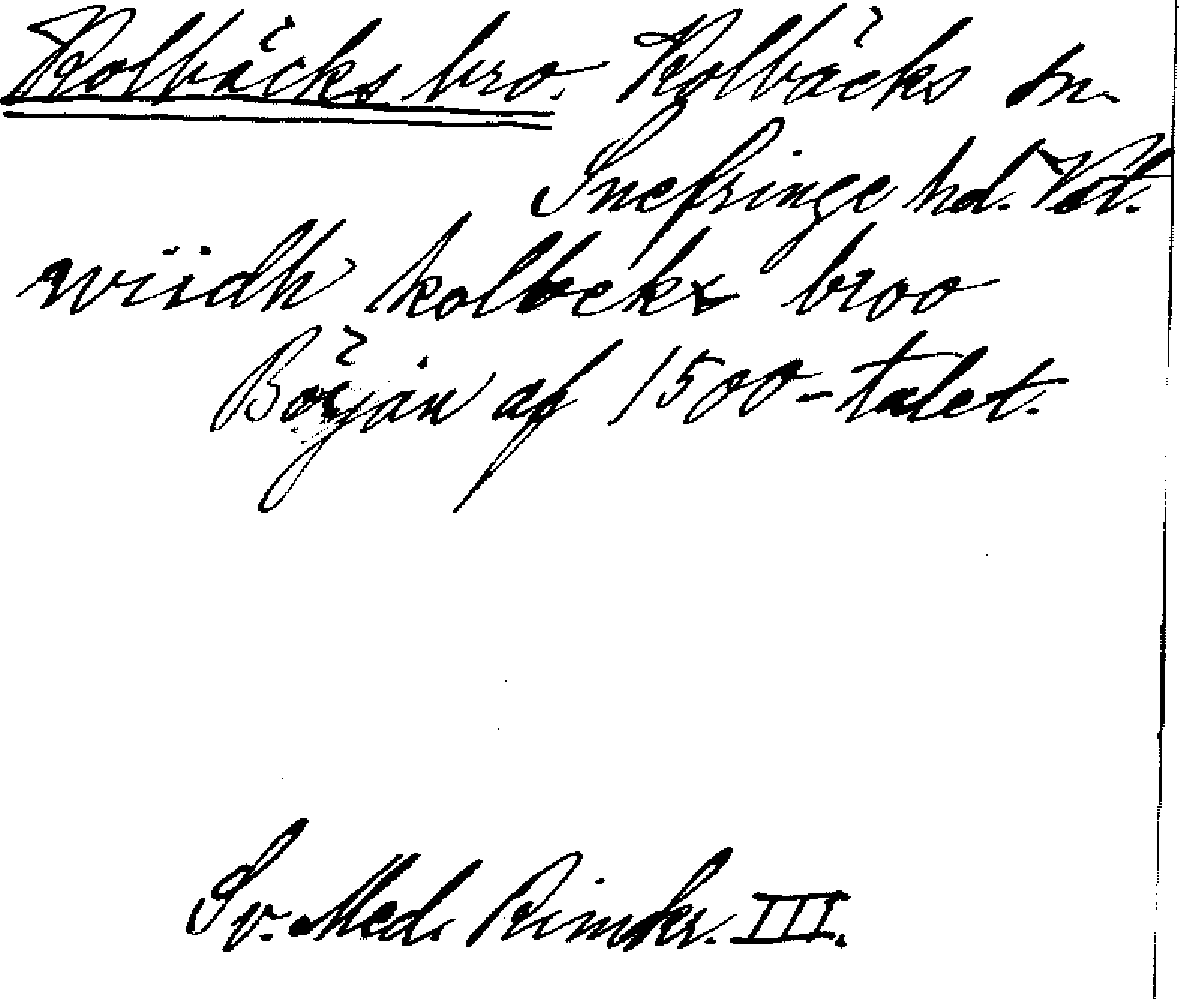 Kolbäcks bro. Kolbäcks sn.
Snefringe hd. Vstl.
wiidh kolbeks broo
Början af 1500-talet.
Sv. Med. Rimkr. III.